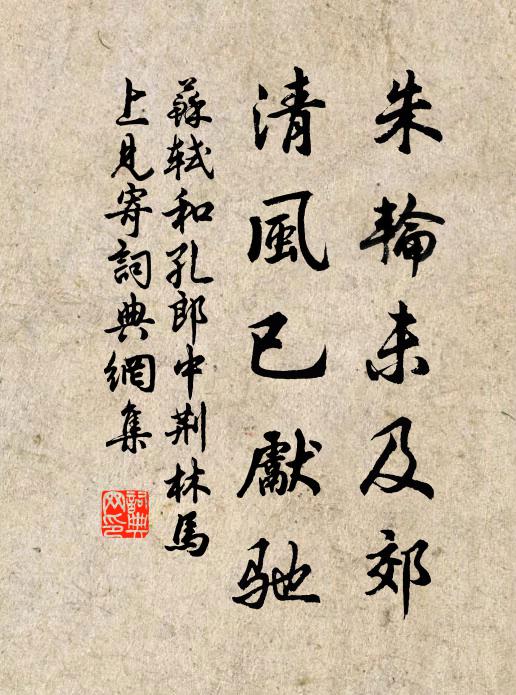 朱輪未及郊
清風已獻馳
蘇軾和孔郎中荆林馬
上見寄詞典網集
詞典
网印